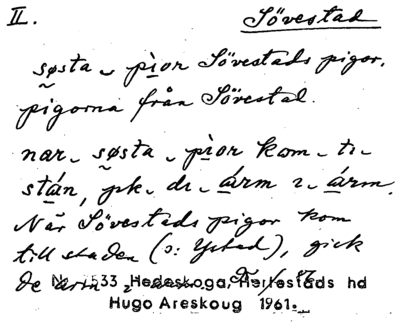 II. Sövestad
søsta ˬ pìor Sövestads pigor,
pigorna från Sövestad.
nar ˬ søsta ˬ pìor kom ˬ tı ˬ
stán, jık ˬ dı ˬ árm ı ˬ árm.
När Sövestads pigor kom
till staden (ɔ: Ystad), gick
de arm
Nr 1533 Hedeskoga, Herrestads hd
Hugo Areskoug 1961.